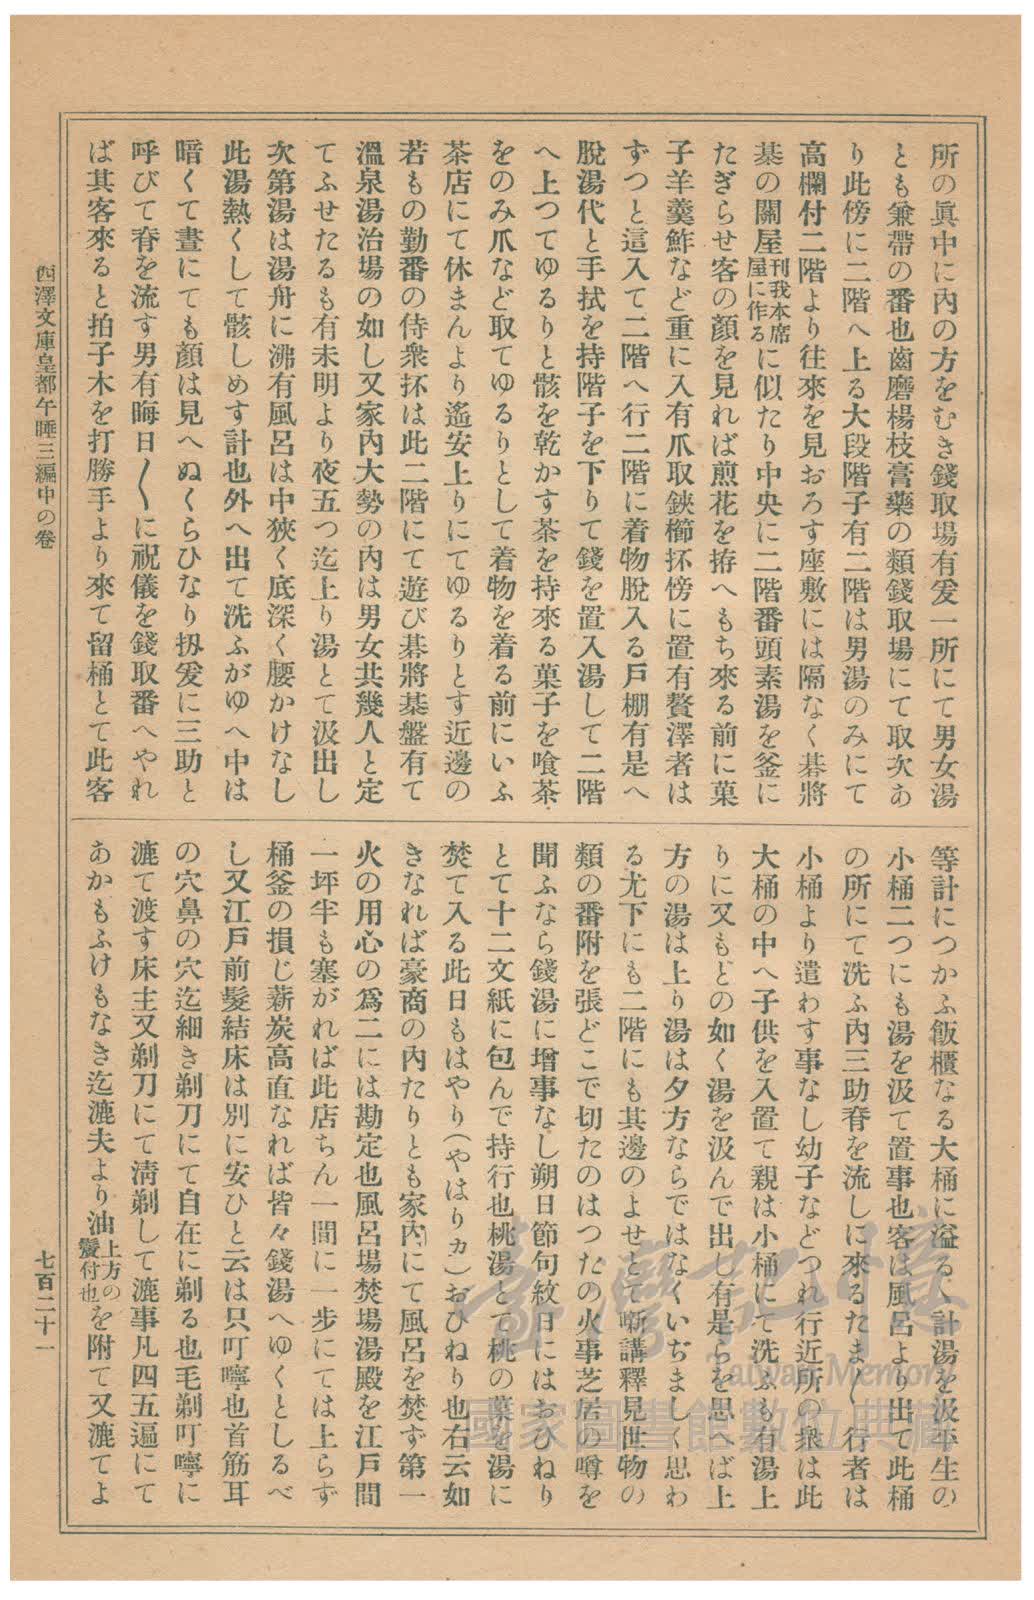 所の眞中に內の方をむき錢取場有爰一所にて男女湯
とも兼帶の番也齒磨楊枝膏藥の類錢取場にて取次あ
り此傍に二階へ上る大段階子有二階は男湯のみにて
高欄付二階より往來を見おろす座敷には隔なく碁將
棊の關屋刊我本席屋に作るに似たり中央に二階番頭素湯を釜に
たぎらせ客の顏を見れば煎花を拵へもち來る前に菓
子羊羹鮓など重に入有爪取鋏櫛抔傍に置有贅澤者は
ずつと這入て二階へ行二階に着物脫入る戶棚有是へ
脫湯代と手拭を持階子を下りて錢を置入湯して二階
へ上つてゆるりと骸を乾かす茶を持來る菓子を喰茶
をのみ爪など取てゆるりとして着物を着る前にいふ
茶店にて休まんより遙安上りにてゆるりとす近邊の
若もの勤番の侍衆抔は此二階にて遊び碁將棊盤有て
溫泉湯治場の如し又家內大勢の內は男女共幾人と定
てふせたるも有未明より夜五つ迄上り湯とて汲出し
次第湯は湯舟に沸有風呂は中狹く底深く腰かけなし
此湯熱くして骸しめす計也外へ出て洗ふがゆへ中は
暗くて晝にても顏は見へぬくらひなり扨爰に三助と
呼びて脊を流す男有晦日〱に祝儀を錢取番へやれ
ば其客來ると拍子木を打勝手より來て留桶とて此客
等計につかふ飯櫃なる大桶に溢るゝ計湯を汲平生の
小桶二つにも湯を汲て置事也客は風呂より出て此桶
の所にて洗ふ內三助脊を流しに來るたま〱行者は
小桶より遣わす事なし幼子などつれ行近所の衆は此
大桶の中へ子供を入置て親は小桶にて洗ふも有湯上
りに又もとの如く湯を汲んで出し有是らを思へば上
方の湯は上り湯は夕方ならではなくいぢましく思わ
る尤下にも二階にも其邊のよせとて噺講釋見世物の
類の番附を張どこで切たのはつたの火事芝居の噂を
聞ふなら錢湯に增事なし朔日節句紋日にはおひねり
とて十二文紙に包んで持行也桃湯とて桃の葉を湯に
焚て入る此日もはやり(やはりカ)おひねり也右云如
きなれば豪商の內たりとも家內にて風呂を焚ず第一
火の用心の爲二には勘定也風呂場焚場湯殿を江戶間
一坪半も塞がれば此店ちん一間に一步にては上らず
桶釜の損じ薪炭高直なれば皆々錢湯へゆくとしるべ
し又江戶前髮結床は別に安ひと云は只叮嚀也首筋耳
の穴鼻の穴迄細き剃刀にて自在に剃る也毛剃叮嚀に
漉て渡す床主又剃刀にて淸剃して漉事凡四五遍にて
あかもふけもなき迄漉夫より油上方の鬢付也を附て又漉てよ
四澤文庫皇都午睡三編中の卷
七百二十一
臺灣記憶
Taiwan Memory
國家圖書館數位典藏